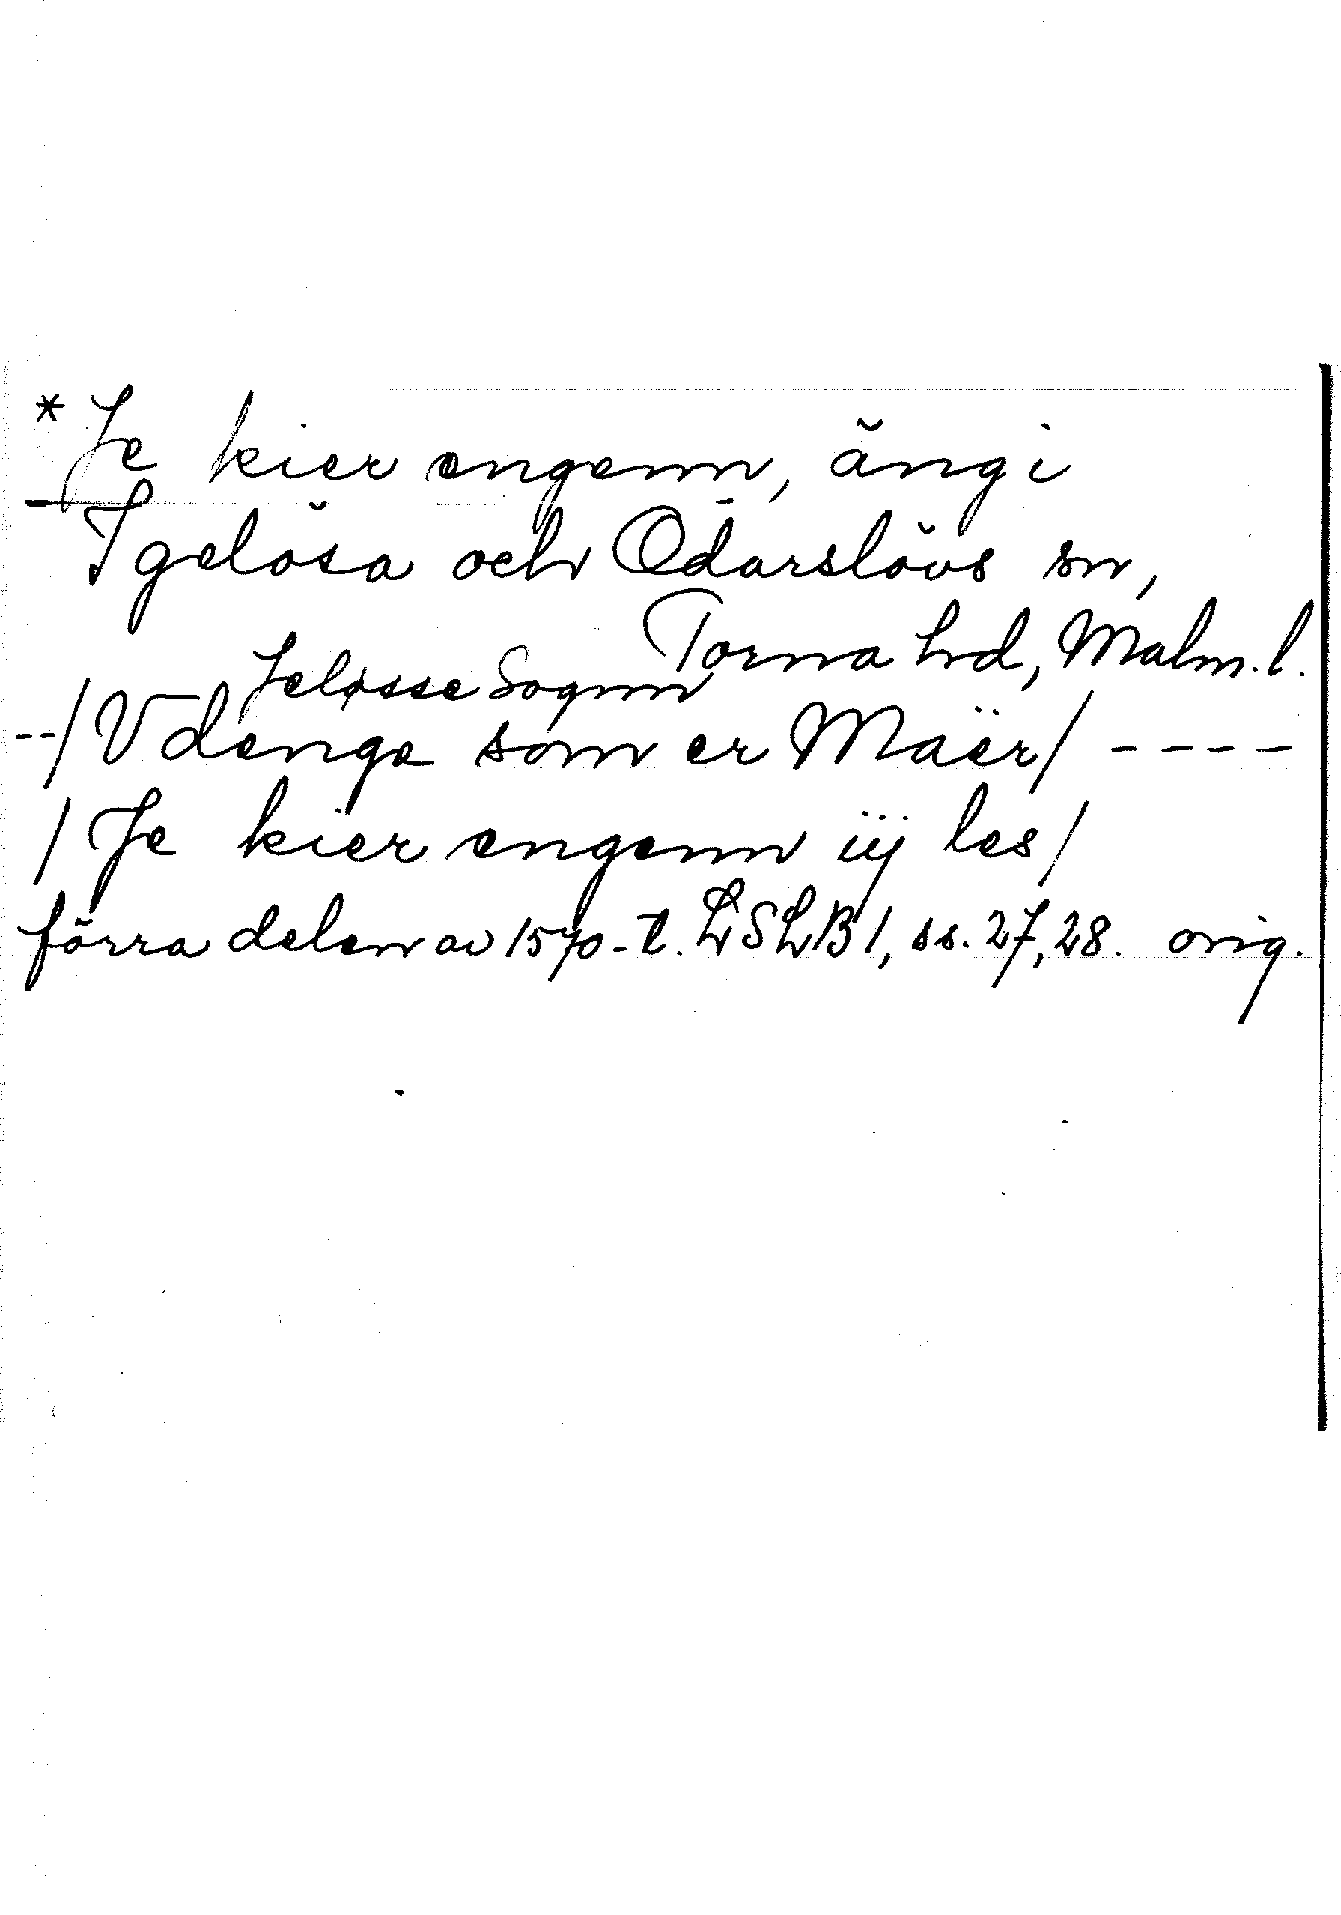 *Je kier engenn, äng i
Igelösa och Odarslövs sn,
Torna hd, Malm. l.
Jeløsse Sognn
--/Vdenge som er Maër/ ----
/Je kier engenn iij les/
förra delen av 1570-t. LSLB1, ss. 27, 28. orig.